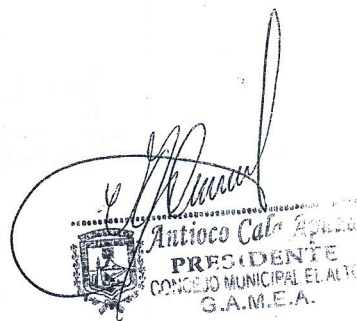 Antioco Cala
PRESIDENTE
CONCEJO MUNICIPAL EL ALTO
G.A.M.E.A.